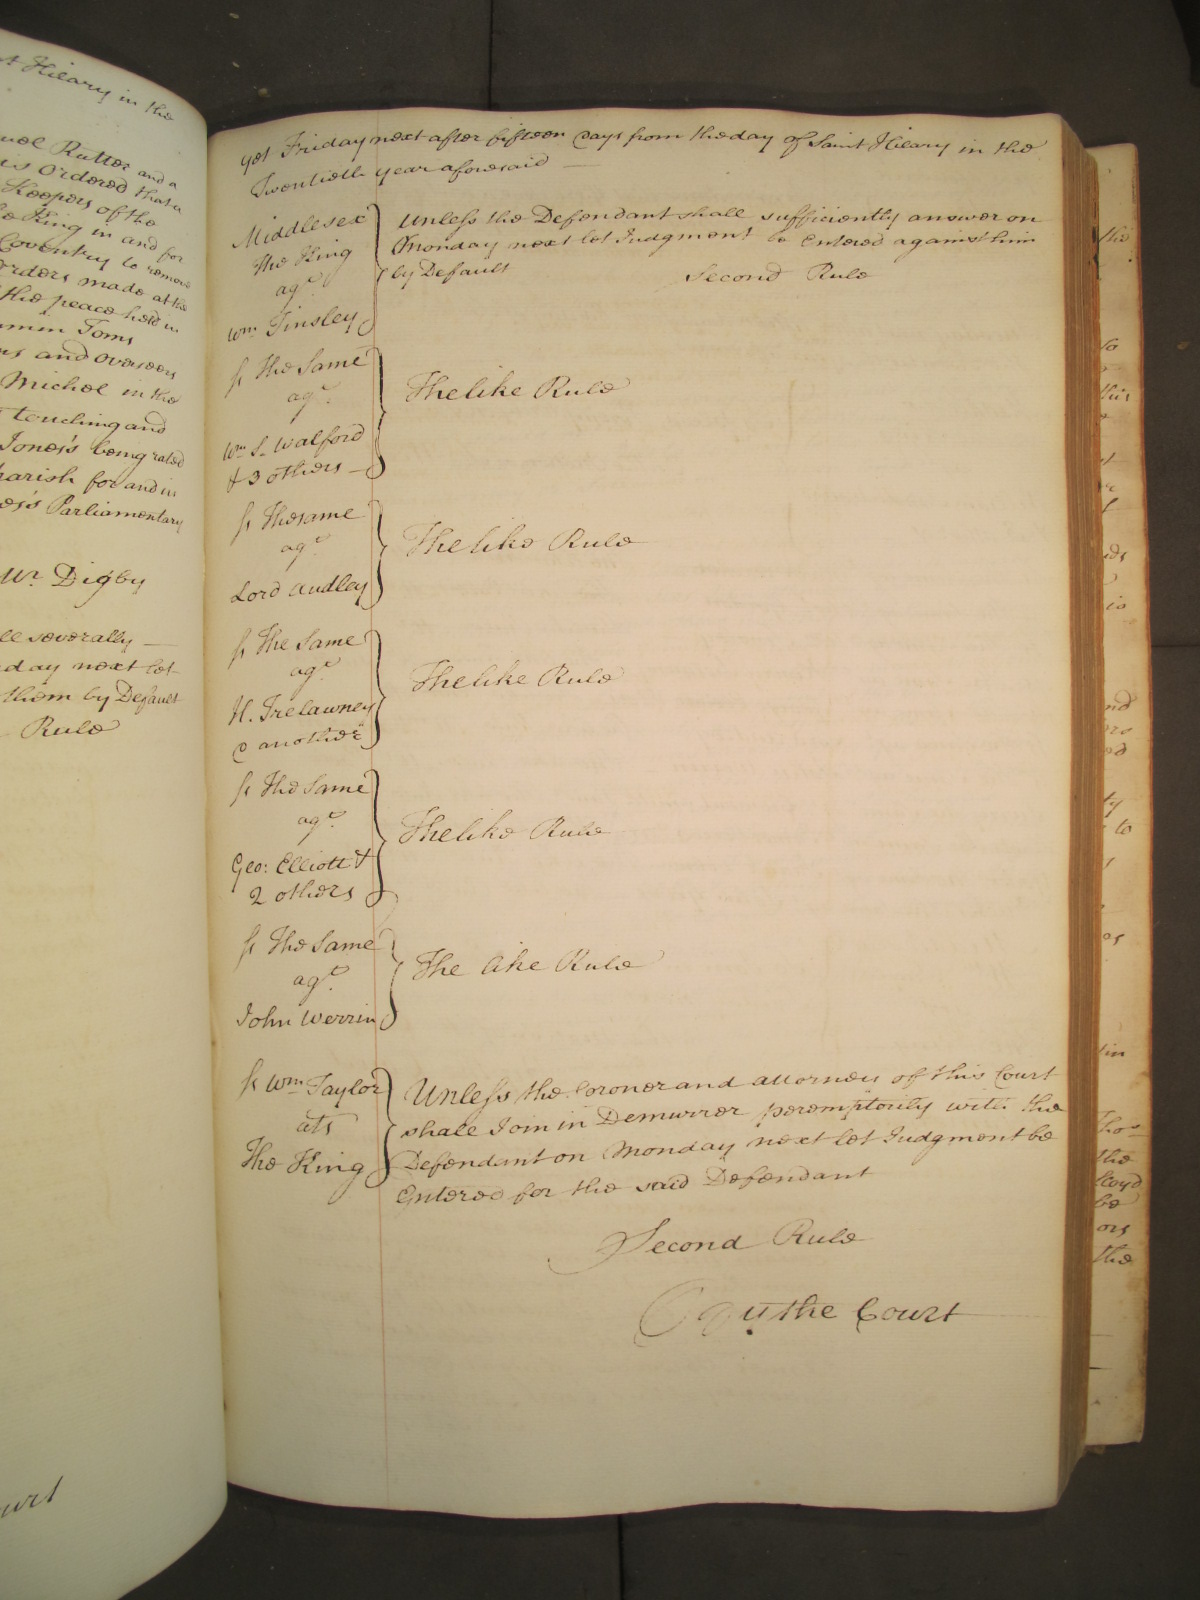 st Hilary in the
uel Rutter and a
is Ordered that a
Keepers of the
he King in and for
Coventry to remove
Orders made at the
the peace held in
amin Toms
ns and Overseers
Michel in the
touching and
Jones's being rated
parish for and in
es's Parliamentary
Mr. Digby
ll severally —
day next let
them by Default
Rule
ourt
yet Friday next after fifteen days from the day of Saint Hilary in the
Twentieth year aforesaid —
Middlesex
The King
agt.
Wm. Tinsley
Unless the Defendant shall sufficiently answer on
Monday next let Judgment be Entered against him
by Default
Second Rule
ss The Same
agt.
Wm. S. Walford
& 3 others —
The like Rule
ss The same
agt.
Lord Audley
The like Rule
ss The Same
agt.
H. Trelawney
& another
The like Rule
ss The Same
agt.
Geo: Elliott &
2 others
The like Rule
ss The Same
agt.
John Werrin
The like Rule
ss Wm. Taylor
ats
The King
Unless the Coroner and attorney of this Court
shall Join in Demurrer peremptorily with the
Defendant on Monday next let Judgment be
Entered for the said Defendant
Second Rule
By the Court
the
so
this
is
to
in
Thos
the
Lloyd
be
ors
the